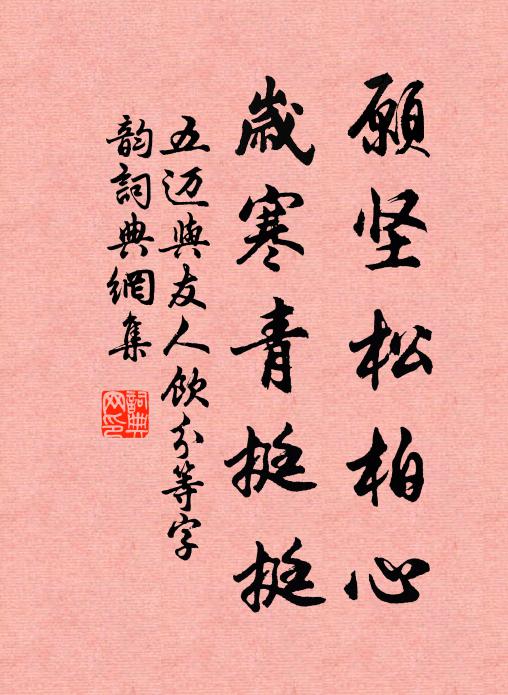 願坚松柏心
歲寒青挺挺
五迈與友人飲分等字
韵詞典網集
詞典網印